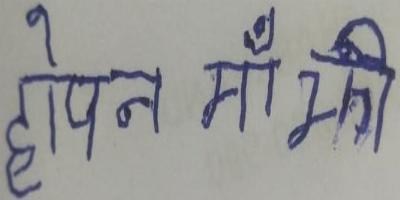 होपन माँझी